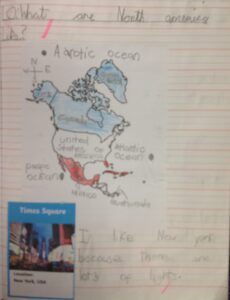 What are North america
is?
A arctic ocean
N
W E
Canada
united
States of
america
Atlantic
ocean
ocean
Mexico
Times Square
Location:
New York, USA
I like New York
because there are
lots of lights.